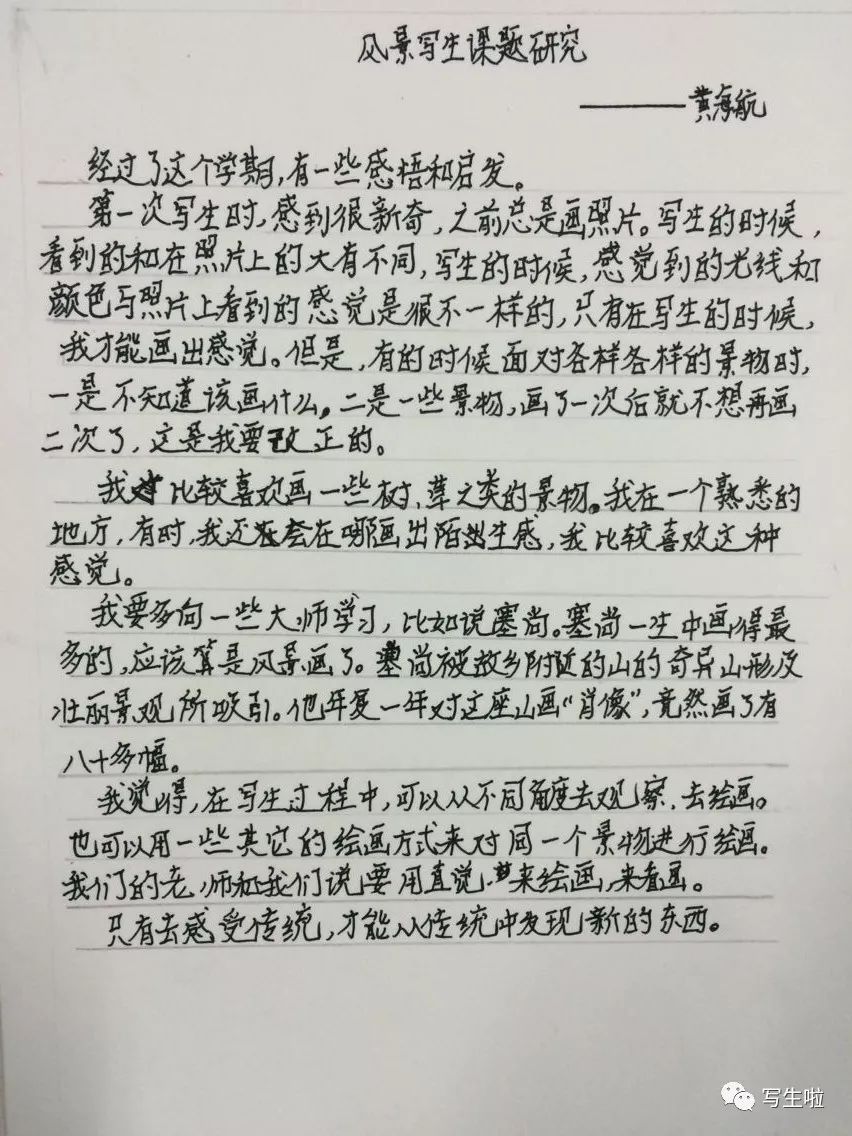 风景写生课题研究
——黄海航
经过了这个学期,有一些感悟和启发。
第一次写生时,感到很新奇,之前总是画照片。写生的时候,
看到的和在照片上的大有不同,写生的时候,感觉到的光线和
颜色与照片上看到的感觉是很不一样的,只有在写生的时候,
我才能画出感觉。但是,有的时候面对各样各样的景物时,
一是不知道该画什么。二是一些景物,画了一次后就不想再画
二次了,这是我要改正的。
我比较喜欢画一些树、草之类的景物。我在一个熟悉的
地方,有时,我还会在哪画出陌生感,我比较喜欢这种
感觉。
我要多向一些大师学习,比如说塞尚。塞尚一生中画得最
多的,应该算是风景画了。塞尚被故乡附近的山的奇异山形及
壮丽景观所吸引。他年复一年对这座山画“肖像”,竟然画了有
八十多幅。
我觉得,在写生过程中,可以从不同角度去观察、去绘画。
也可以用一些其它的绘画方式来对同一个景物进行绘画。
我们的老师和我们说要用直觉来绘画,来看画。
只有去感受传统,才能从传统中发现新的东西。
写生啦